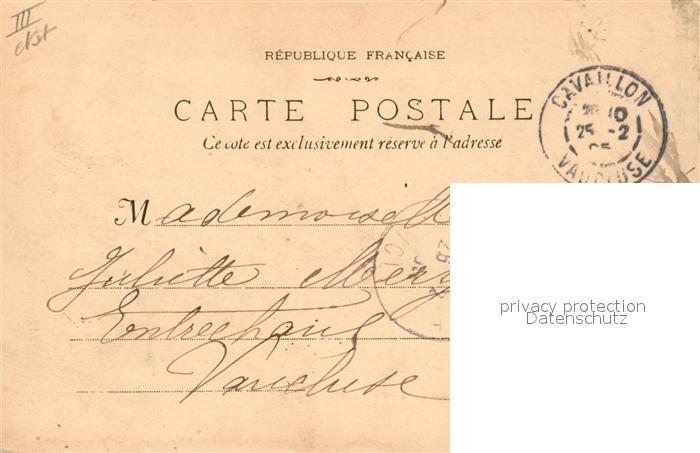 III
RÉPUBLIQUE FRANÇAISE
CARTE POSTALE
Ce coté est exclusivement réservé à l'adresse
CAVAILLON
25 -2
05
VAUCLUSE
Mademoiselle
Juliette
Entrechaux
Vaucluse
25
privacy protection
Datenschutz